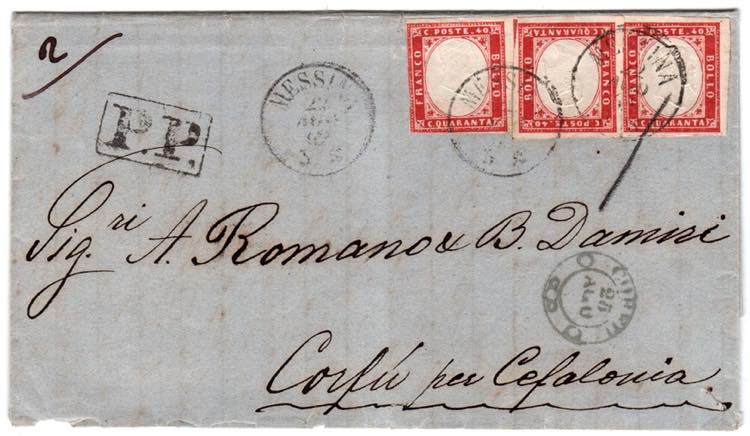 2
C. POSTE. 40
FRANCO
BOLLO
C. QUARANTA
C. POSTE. 40
FRANCO
BOLLO
C. QUARANTA
C. POSTE. 40
FRANCO
BOLLO
C. QUARANTA
MESSINA
MESSINA
P.P.
Sig.ri A. Romano & B. Damisi
25
AUG
Corfú per Cefalonia